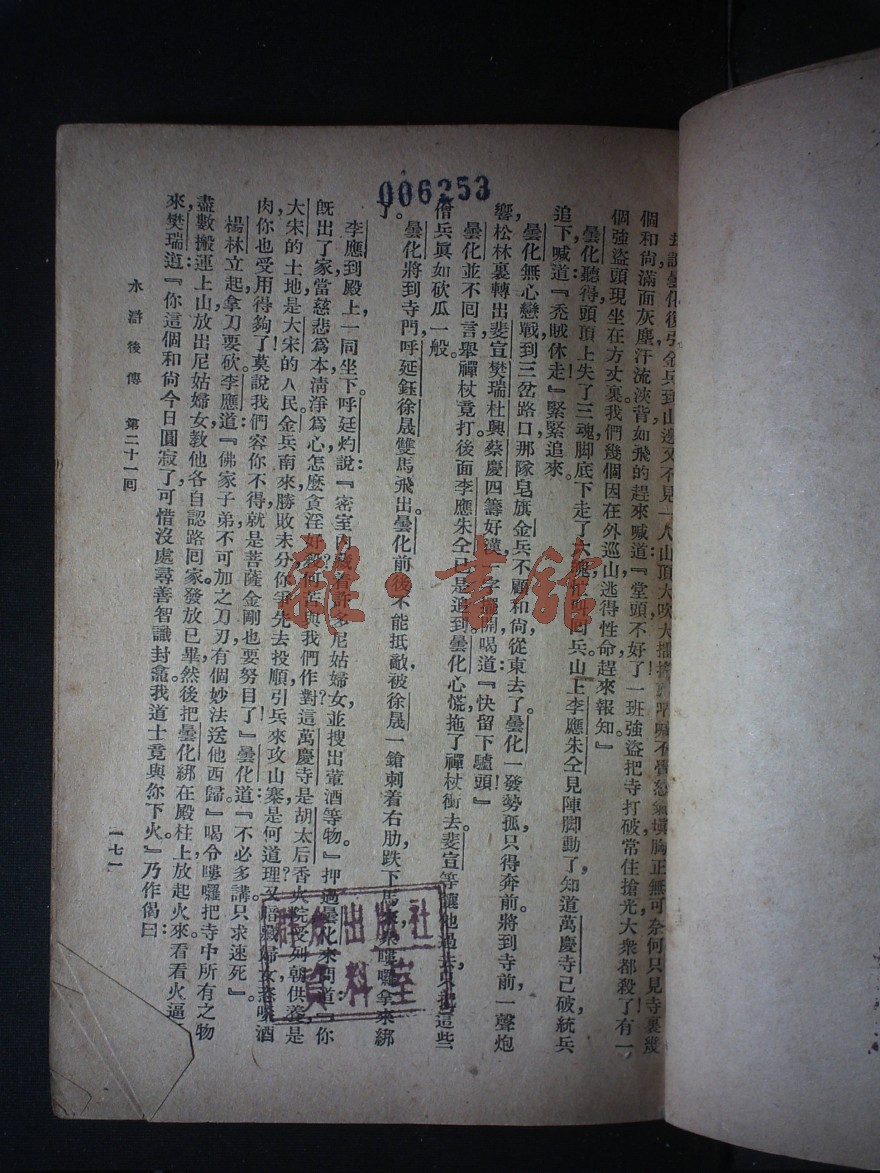 006253
却說曇化後引金兵到山邊又不見一人山頂大吹大擂
正無可奈何只見寺裏幾
個和尚滿面灰塵汗流浹背如飛的趕來喊道『堂頭不好了一班強盜把寺打破常住搶光大衆都殺了有一
個強盜頭現坐在方丈裏我們幾個因在外巡山逃得性命趕來報知』
曇化聽得頭頂上失了三魂脚底下走了七魄忙叫回兵山上李應朱仝見陣脚動了知道萬慶寺已破統兵
追下喊道『禿賊休走』緊緊追來。
曇化無心戀戰到三岔路口那隊皂旗金兵不顧和尚從東去了。曇化一發勢孤只得奔前將到寺前一聲炮
響松林裏轉出裴宣樊瑞杜興蔡慶四籌好漢一字擺開喝道『快留下驢頭』
曇化並不囘言舉禪杖竟打後面李應朱仝已是追到曇化心慌拖了禪杖衝去裴宣等讓他過去只把這些
僧兵眞如砍瓜一般。
曇化將到寺門呼延鈺徐晟雙馬飛出曇化前後不能抵敵被徐晟一鎗刺着右肋跌下馬來嘍囉拿來綁
了。
李應到殿上一同坐下呼延灼說『密室內藏着許多尼姑婦女並搜出葷酒等物』押過曇化來問道『你
旣出了家當慈悲爲本清淨爲心怎麼貪淫好殺何苦與我們作對這萬慶寺是胡太后香火院受列朝供養是
大宋的土地是大宋的人民金兵南來勝敗未分你爭先去投順引兵來攻山寨是何道理又窩藏婦女恣喫酒
肉你也受用得夠了莫說我們容你不得就是菩薩金剛也要努目了』曇化道『不必多講只求速死』
楊林立起拿刀要砍李應道『佛家子弟不可加之刀刃有個妙法送他西歸』喝令嘍囉把寺中所有之物
盡數搬運上山放出尼姑婦女教他各自認路囘家。發放已畢然後把曇化綁在殿柱上放起火來看看火逼
來樊瑞道『你這個和尚今日圓寂了可惜沒處尋善智識封龕我道士竟與你下火』乃作偈曰
水滸後傳 第二十一囘
【七】
雜·書館
群众出版社
資料室